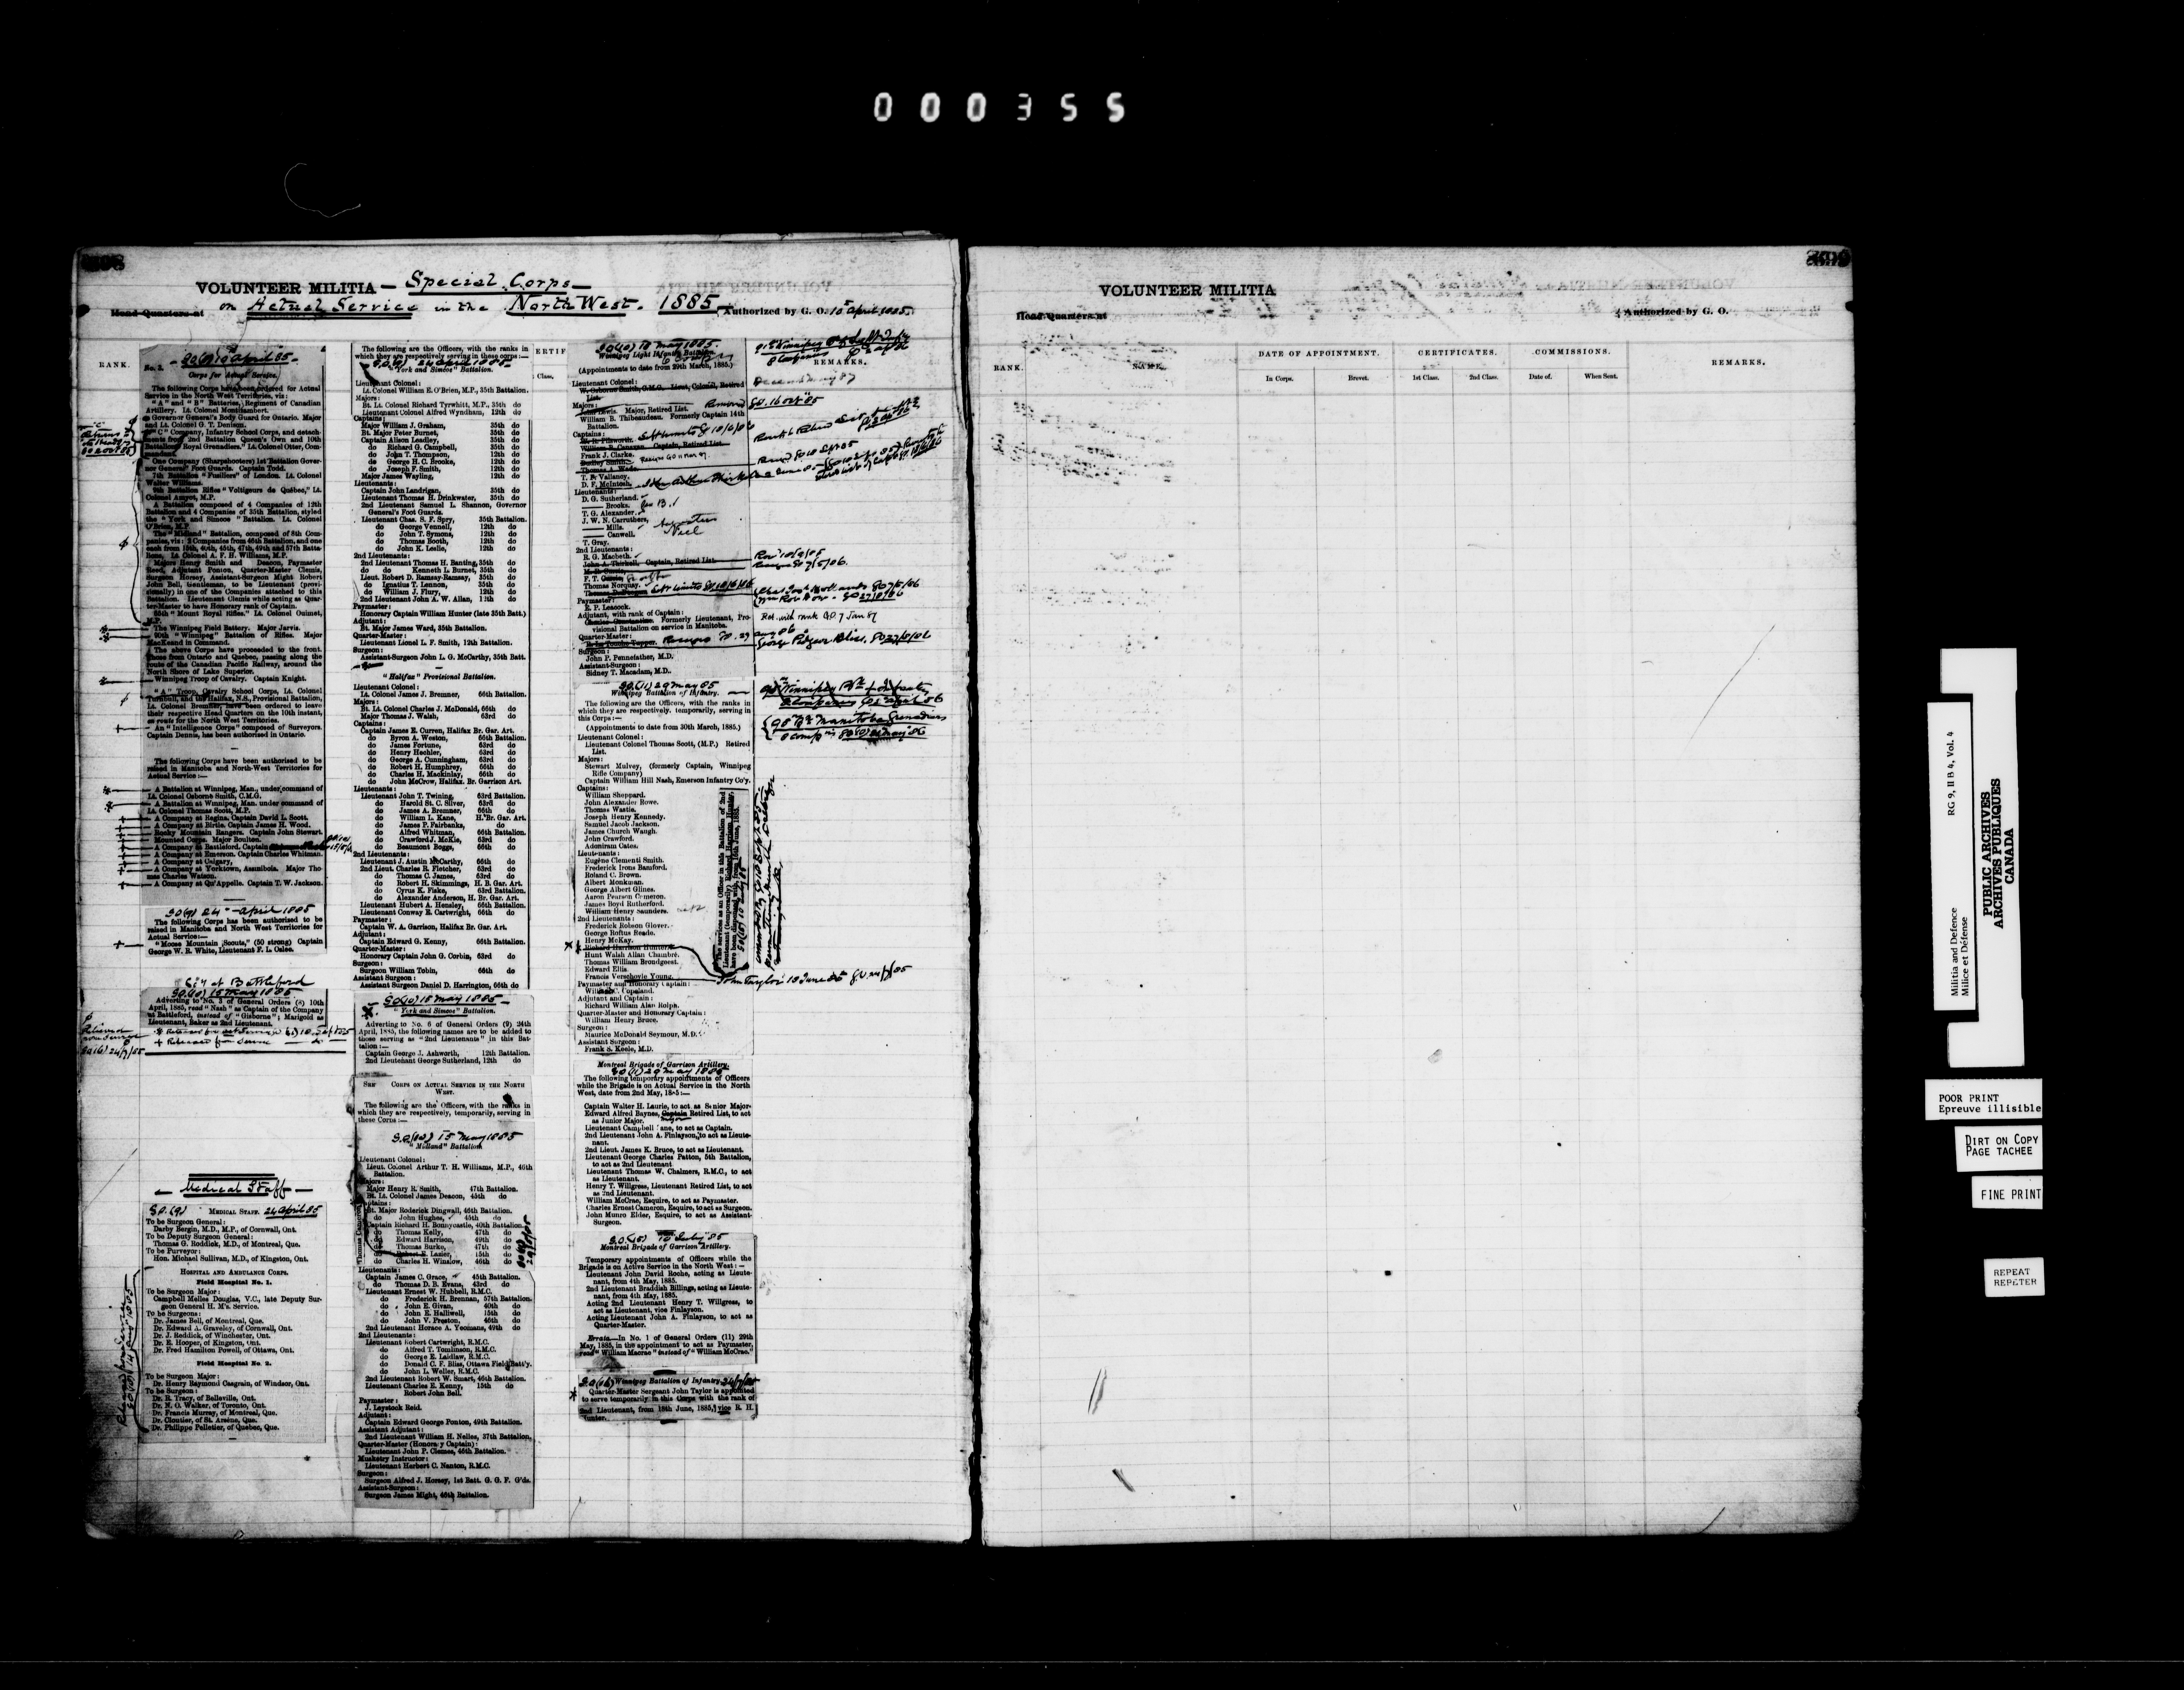 000355
VOLUNTEER MILITIA — Special Corps —
on Actual Service in the North West. 1885.
Head Quarters at
Authorized by G. O. 10 April 1885.
RANK.
10 April 85
No. 3.
Corps for Actual Service.
The following Corps have been ordered for Actual
Service in the North West Territories, viz:
"A" and "B" Batteries, Regiment of Canadian
Artillery. Lt. Colonel Montizambert.
Governor General's Body Guard for Ontario. Major
and Lt. Colonel G. T. Denison.
"C" Company, Infantry School Corps, and detach-
ments from 2nd Battalion Queen's Own and 10th
Battalion "Royal Grenadiers." Lt. Colonel Otter, Com-
mandant.
One Company (Sharpshooters) 1st Battalion Gover-
nor General's Foot Guards. Captain Todd.
7th Battalion "Fusiliers" of London. Lt. Colonel
Walter Williams.
9th Battalion Rifles "Voltigeurs de Québec," Lt.
Colonel Amyot, M.P.
A Battalion composed of 4 Companies of 12th
Battalion and 4 Companies of 35th Battalion, styled
the "York and Simcoe" Battalion. Lt. Colonel
O'Brien, M.P.
The "Midland" Battalion, composed of 8th Com-
panies, viz: 2 Companies from 46th Battalion, and one
each from 15th, 40th, 45th, 47th, 49th and 57th Batta-
lions, Lt. Colonel A. F. H. Williams, M.P.
Majors Henry Smith and Deacon, Paymaster
Reed, Adjutant Ponton, Quarter-Master Clemis,
Surgeon Horsey, Assistant-Surgeon Might Robert
John Bell, Gentleman, to be Lieutenant (provi-
sionally) in one of the Companies attached to this
Battalion. Lieutenant Clemis while acting as Quar-
ter-Master to have Honorary rank of Captain.
65th "Mount Royal Rifles." Lt. Colonel Ouimet,
M.P.
The Winnipeg Field Battery. Major Jarvis.
90th "Winnipeg" Battalion of Rifles. Major
MacKeand in Command.
The above Corps have proceeded to the front.
Those from Ontario and Quebec, passing along the
route of the Canadian Pacific Railway, around the
North Shore of Lake Superior.
Winnipeg Troop of Cavalry. Captain Knight.
"A" Troop, Cavalry School Corps, Lt. Colonel
Turnbull, and the Halifax, N.S., Provisional Battalion,
Lt. Colonel Bremner, have been ordered to leave
their respective Head Quarters on the 10th instant,
en route for the North West Territories.
An "Intelligence Corps" composed of Surveyors.
Captain Dennis, has been authorised in Ontario.
The following Corps have been authorised to be
raised in Manitoba and North-West Territories for
Actual Service:—
A Battalion at Winnipeg, Man., under command of
Lt. Colonel Osborne Smith, C.M.G.
A Battalion at Winnipeg, Man. under command of
Lt. Colonel Thomas Scott, M.P.
A Company at Regina. Captain David L. Scott.
A Company at Birtle. Captain James H. Wood.
Rocky Mountain Rangers. Captain John Stewart.
Mounted Corps. Major Boulton.
A Company at Battleford. Captain
A Company at Emerson. Captain Charles Whitman.
A Company at Calgary,
A Company at Yorktown, Assiniboia. Major Tho-
mas Charles Watson.
A Company at Qu'Appelle. Captain T. W. Jackson.
GO (9) 24 April 1885
The following Corps has been authorised to be
raised in Manitoba and North West Territories for
Actual Service:—
"Moose Mountain Scouts," (50 strong) Captain
George W. R. White, Lieutenant F. L. Oslee.
Coy at Battleford
GO (10) 15 May 1885
Adverting to No. 3 of General Orders (8) 10th
April, 1885, read "Nash" as Captain of the Company
at Battleford, instead of "Gisborne"; Marigold as
Lieutenant, Baker as 2nd Lieutenant.
+ Released from Service
Medical Staff
G.O. (9) MEDICAL STAFF. 24 April 85
To be Surgeon General:
Darby Bergin, M.D., M.P., of Cornwall, Ont.
To be Deputy Surgeon General:
Thomas G. Roddick, M.D., of Montreal, Que.
To be Purveyor:
Hon. Michael Sullivan, M.D., of Kingston, Ont.
HOSPITAL AND AMBULANCE CORPS.
Field Hospital No. 1.
To be Surgeon Major:
Campbell Melles Douglas, V.C., late Deputy Sur-
geon General H. M's. Service.
To be Surgeons:
Dr. James Bell, of Montreal, Que.
Dr. Edward A. Graveley, of Cornwall, Ont.
Dr. J. Reddick, of Winchester, Ont.
Dr. E. Hooper, of Kingston, Ont.
Dr. Fred Hamilton Powell, of Ottawa, Ont.
Field Hospital No. 2.
To be Surgeon Major:
Dr. Henry Raymond Casgrain, of Windsor, Ont.
To be Surgeon:
Dr. R. Tracy, of Belleville, Ont.
Dr. N. O. Walker, of Toronto, Ont.
Dr. Francis Murray, of Montreal, Que.
Dr. Cloutier, of St. Arsène, Que.
Dr. Philippe Pelletier, of Quebec, Que.
The following are the Officers, with the ranks in
which they are respectively serving in these corps:—
G.O. (9) 24 April 1885
"York and Simcoe" Battalion.
Lieutenant Colonel:
Lt. Colonel William E. O'Brien, M.P., 35th Battalion.
Majors:
Bt. Lt. Colonel Richard Tyrwhitt, M.P., 35th do
Lieutenant Colonel Alfred Wyndham, 12th do
Captains:
Major William J. Graham, 35th do
Bt. Major Peter Burnet, 35th do
Captain Alison Leadley, 35th do
do Richard G. Campbell, 35th do
do John T. Thompson, 12th do
do George H. C. Brooke, 12th do
do Joseph F. Smith, 12th do
Major James Wayling, 12th do
Lieutenants:
Captain John Landrigan, 35th do
Lieutenant Thomas H. Drinkwater, 35th do
2nd Lieutenant Samuel L. Shannon, Governor
General's Foot Guards.
Lieutenant Chas. S. F. Spry, 35th Battalion.
do George Vennell, 12th do
do John T. Symons, 12th do
do Thomas Booth, 12th do
do John K. Leslie, 12th do
2nd Lieutenants:
2nd Lieutenant Thomas H. Banting, 35th do
do do Kenneth L. Burnet, 35th do
Lieut. Robert D. Ramsay-Ramsay, 35th do
do Ignatius T. Lennon, 35th do
do William J. Flury, 35th do
2nd Lieutenant John A. W. Allan, 12th do
Paymaster:
Honorary Captain William Hunter (late 35th Batt.)
Adjutant:
Bt. Major James Ward, 35th Battalion.
Quarter-Master:
Lieutenant Lionel L. F. Smith, 12th Battalion.
Surgeon:
Assistant-Surgeon John L. G. McCarthy, 35th Batt.
"Halifax" Provisional Battalion.
Lieutenant Colonel:
Lt. Colonel James J. Bremner, 66th Battalion.
Majors:
Bt. Lt. Colonel Charles J. McDonald, 66th do
Major Thomas J. Walsh, 63rd do
Captains:
Captain James E. Curren, Halifax Br. Gar. Art.
do Byron A. Weston, 66th Battalion.
do James Fortune, 63rd do
do Henry Hechler, 63rd do
do George A. Cunningham, 63rd do
do Robert H. Humphrey, 66th do
do Charles H. Mackinlay, 66th do
do John McCrow, Halifax. Br. Garrison Art.
Lieutenants:
Lieutenant John T. Twining, 63rd Battalion.
do Harold St. C. Silver, 63rd do
do James A. Bremner, 66th do
do William L. Kane, H. Br. Gar. Art.
do James P. Fairbanks, do
do Alfred Whitman, 66th Battalion.
do Crawford J. McKie, 63rd do
do Beaumont Boggs, 66th do
2nd Lieutenants:
Lieutenant J. Austin McCarthy, 66th do
2nd Lieut. Charles R. Fletcher, 63rd do
do Thomas C. James, 63rd do
do Robert H. Skimmings, H. B. Gar. Art.
do Cyrus K. Fiske, 63rd Battalion.
do Alexander Anderson, H. Br. Gar. Art.
Lieutenant Hubert A. Hensley, 66th Battalion.
Lieutenant Conway E. Cartwright, 66th do
Paymaster:
Captain W. A. Garrison, Halifax Br. Gar. Art.
Adjutant:
Captain Edward G. Kenny, 66th Battalion.
Quarter-Master:
Honorary Captain John G. Corbin, 63rd do
Surgeon:
Surgeon William Tobin, 66th do
Assistant Surgeon:
Assistant Surgeon Daniel D. Harrington, 66th do
GO (10) 15 May 1885
"York and Simcoe" Battalion.
Adverting to No. 6 of General Orders (9) 24th
April, 1885, the following names are to be added to
those serving as "2nd Lieutenants" in this Bat-
talion:—
Captain George J. Ashworth, 12th Battalion.
2nd Lieutenant George Sutherland, 12th do
SEE CORPS ON ACTUAL SERVICE IN THE NORTH
WEST.
The following are the Officers, with the ranks in
which they are respectively, temporarily, serving in
these Corps:—
G.O. (10) 15 May 1885
"Midland" Battalion
Lieutenant Colonel:
Lieut. Colonel Arthur T. H. Williams, M.P., 46th
Battalion.
Majors:
Major Henry R. Smith, 47th Battalion.
Bt. Lt. Colonel James Deacon, 45th do
Captains:
Bt. Major Roderick Dingwall, 46th Battalion.
do John Hughes, 45th do
Captain Richard H. Bonnycastle, 40th Battalion
do Thomas Kelly, 47th do
do Edward Harrison, 49th do
do Thomas Burke, 47th do
do Lazier, 15th do
do Charles H. Winslow, 46th do
Lieutenants:
Captain James C. Grace, 45th Battalion.
do Thomas D. B. Evans, 43rd do
Lieutenant Ernest W. Hubbell, R.M.C.
do Frederick H. Brennan, 57th Battalion
do John E. Givan, 40th do
do John E. Halliwell, 15th do
do John V. Preston, 46th do
2nd Lieutenant Horace A. Yeomans, 49th do
2nd Lieutenants:
Lieutenant Robert Cartwright, R.M.C.
do Alfred T. Tomlinson, R.M.C.
do George E. Laidlaw, R.M.C.
do Donald C. F. Bliss, Ottawa Field Batt'y.
do John L. Weller, R.M.C.
2nd Lieutenant Robert W. Smart, 46th Battalion.
Lieutenant Charles E. Kenny, 15th do
Robert John Bell.
Paymaster:
J. Leystock Reid.
Adjutant:
Captain Edward George Ponton, 49th Battalion.
Assistant Adjutant:
2nd Lieutenant William H. Nelles, 37th Battalion.
Quarter-Master (Honorary Captain):
Lieutenant John P. Clemes, 46th Battalion.
Musketry Instructor:
Lieutenant Herbert C. Nanton, R.M.C.
Surgeon:
Surgeon Alfred J. Horsey, 1st Batt. G. G. F. G'ds.
Assistant-Surgeon:
Surgeon James Might, 46th Battalion.
ERTIF
Class.
GO (10) 18 May 1885.
Winnipeg Light Infantry Battalion
(Appointments to date from 29th March, 1885.)
Lieutenant Colonel:
W. Osborne Smith, C.M.G. Lieut. Colonel, Retired
List.
Majors:
John Lewis. Major, Retired List. Removed
William B. Thibeaudeau. Formerly Captain 14th
Battalion.
Captains:
William B. Canavan. Captain, Retired List.
Frank J. Clarke.
Dudley Smith.
Thomas A. Wade.
T. P. Vallancy.
D. F. McIntosh.
Lieutenants:
D. G. Sutherland.
—— Brooks. Geo B.
T. G. Alexander.
J. W. N. Carruthers.
—— Mills.
—— Canwell.
T. Gray.
2nd Lieutenants:
R. G. Macbeth.
John A. Thirkell. Captain, Retired List.
Thomas Norquay.
Paymaster:
E. P. Leacock.
Adjutant, with rank of Captain:
Charles Constantine. Formerly Lieutenant, Pro-
visional Battalion on service in Manitoba.
Quarter-Master:
Surgeon:
John P. Pennefather, M.D.
Assistant-Surgeon:
Sidney T. Macadam, M.D.
REMARKS.
GO. 16 Oct 85
Ret. with rank GO 7 Jan 87
George Pidgeon Bliss.
GO. (11) 29 May 85
Winnipeg Battalion of Infantry.
The following are the Officers, with the ranks in
which they are respectively, temporarily, serving in
this Corps:—
(Appointments to date from 30th March, 1885.)
Lieutenant Colonel:
Lieutenant Colonel Thomas Scott, (M.P.) Retired
List.
Majors:
Stewart Mulvey, (formerly Captain, Winnipeg
Rifle Company)
Captain William Hill Nash, Emerson Infantry Co'y.
Captains:
William Sheppard.
John Alexander Rowe.
Thomas Wastie.
Joseph Henry Kennedy.
Samuel Jacob Jackson.
James Church Waugh.
John Crawford.
Adoniram Cates.
Lieutenants:
Eugène Clementi Smith.
Frederick Irons Bamford.
Roland C. Brown.
Albert Monkman.
George Albert Glines.
Aaron Pearson Cameron.
James Boyd Rutherford.
William Henry Saunders.
2nd Lieutenants:
Frederick Robson Glover.
George Roftus Reade.
Henry McKay.
Richard Harrison Hunter.
Hunt Walsh Allan Chambré.
Thomas William Brondgeest.
Edward Ellis.
Francis Verschoyle Young.
Paymaster and Honorary Captain:
William C. Copeland.
Adjutant and Captain:
Richard William Alan Rolph.
Quarter-Master and Honorary Captain:
William Henry Bruce.
Surgeon:
Maurice McDonald Seymour, M.D.
Assistant Surgeon:
Frank S. Keele, M.D.
The services as an Officer in this Battalion of 2nd
Lieutenant (temporarily) Richard Harrison Hunter,
have been dispensed with, from 18th June, 1885.
John Taylor 18 June 85
Montreal Brigade of Garrison Artillery.
GO (11) 29 May 1885
The following temporary appointments of Officers
while the Brigade is on Actual Service in the North
West, date from 2nd May, 1885:—
Captain Walter H. Laurie, to act as Senior Major
Edward Alfred Baynes, Captain Retired List, to act
as Junior Major.
Lieutenant Campbell Lane, to act as Captain.
2nd Lieutenant John A. Finlayson, to act as Lieute-
nant.
2nd Lieut. James K. Bruce, to act as Lieutenant.
Lieutenant George Charles Patton, 5th Battalion,
to act as 2nd Lieutenant
Lieutenant Thomas W. Chalmers, R.M.C., to act
as Lieutenant.
Henry T. Willgress, Lieutenant Retired List, to act
as 2nd Lieutenant.
William McCrae, Esquire, to act as Paymaster.
Charles Ernest Cameron, Esquire, to act as Surgeon.
John Munro Elder, Esquire, to act as Assistant-
Surgeon.
G.O. (15) 10 July 85
Montreal Brigade of Garrison Artillery.
Temporary appointments of Officers while the
Brigade is on Active Service in the North West:—
Lieutenant John David Roche, acting as Lieute-
nant, from 4th May, 1885.
2nd Lieutenant Braddish Billings, acting as Lieute-
nant, from 4th May, 1885.
Acting 2nd Lieutenant Henry T. Willgress, to
act as Lieutenant, vice Finlayson.
Acting Lieutenant John A. Finlayson, to act as
Quarter-Master.
Errata—In No. 1 of General Orders (11) 29th
May, 1885, in the appointment to act as Paymaster,
read "William Macrae" instead of "William McCrae."
G.O. (16) Winnipeg Battalion of Infantry. 24/7/85
Quarter-Master Sergeant John Taylor is appointed
to serve temporarily in this Corps with the rank of
2nd Lieutenant, from 18th June, 1885, vice R. H.
Hunter.
VOLUNTEER MILITIA
Head Quarters at
Authorized by G. O.
RANK.
NAME.
DATE OF APPOINTMENT.
In Corps.
Brevet.
CERTIFICATES.
1st Class.
2nd Class.
COMMISSIONS.
Date of.
When Sent.
REMARKS.
Militia and Defence
Milice et Défense
RG 9, II B 4, Vol. 4
PUBLIC ARCHIVES
ARCHIVES PUBLIQUES
CANADA
POOR PRINT
Epreuve illisible
DIRT ON COPY
PAGE TACHEE
FINE PRINT
REPEAT
REPETER